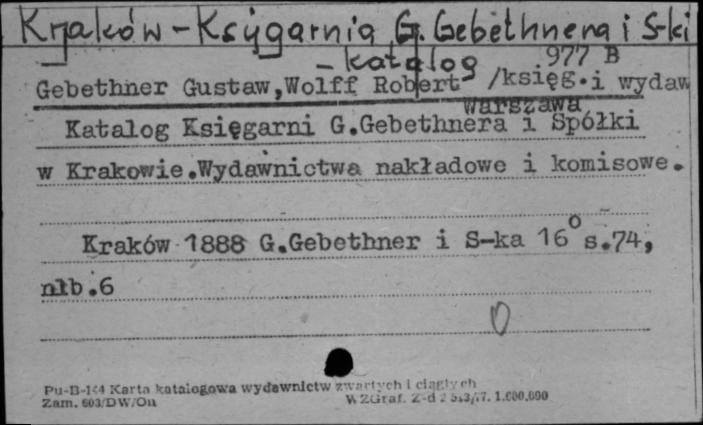 Kraków - Księgarnia G. Gebethnera i S-ki
- katalog 977 B
Gebethner Gustaw,Wolff Robert /księg.i wydaw
Warszawa
Katalog Księgarni G.Gebethnera i Spółki
w Krakowie.Wydawnictwa nakładowe i komisowe.
Kraków 1888 G.Gebethner i S-ka 16° s.74,
nlb.6
0
Pu-B-144 Karta katalogowa wydawnictw zwartych i ciągłych
Zam. 603/DW/On WZGraf. Z-d 2 1.000.000